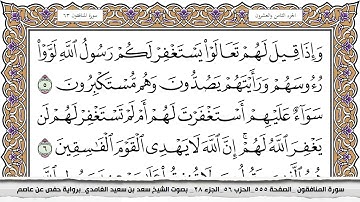 الجزء الثامن والعشرون
سورة المنافقون ٦٣
وَإِذَا قِيلَ لَهُمْ تَعَالَوْا۟ يَسْتَغْفِرْ لَكُمْ رَسُولُ ٱللَّهِ لَوَّوْا۟
رُءُوسَهُمْ وَرَأَيْتَهُمْ يَصُدُّونَ وَهُم مُّسْتَكْبِرُونَ ٥
سَوَآءٌ عَلَيْهِمْ أَسْتَغْفَرْتَ لَهُمْ أَمْ لَمْ تَسْتَغْفِرْ لَهُمْ لَن
يَغْفِرَ ٱللَّهُ لَهُمْ ۚ إِنَّ ٱللَّهَ لَا يَهْدِى ٱلْقَوْمَ ٱلْفَٰسِقِينَ ٦
سورة المنافقون _ الصفحة ٥٥٥ _ الحزب ٥٦ _ الجزء ٢٨ _ بصوت الشيخ سعد بن سعيد الغامدي _ برواية حفص عن عاصم